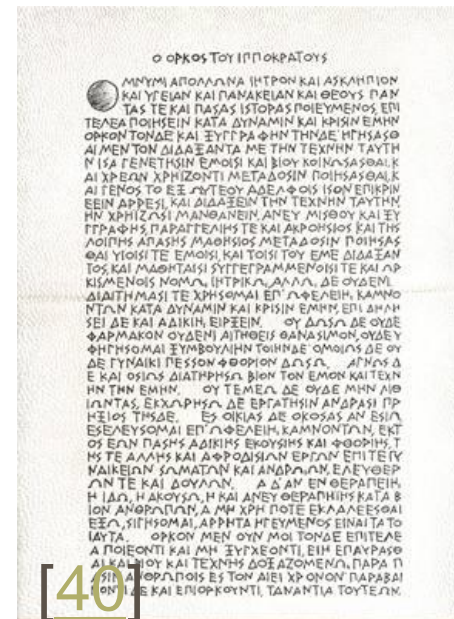 Ο ΟΡΚΟΣ ΤΟΥ ΙΠΠΟΚΡΑΤΟΥΣ
ΟΜΝΥΜΙ ΑΠΟΛΛΩΝΑ ΙΗΤΡΟΝ ΚΑΙ ΑΣΚΛΗΠΙΟΝ
ΚΑΙ ΥΓΕΙΑΝ ΚΑΙ ΠΑΝΑΚΕΙΑΝ ΚΑΙ ΘΕΟΥΣ ΠΑΝ
ΤΑΣ ΤΕ ΚΑΙ ΠΑΣΑΣ ΙΣΤΟΡΑΣ ΠΟΙΕΥΜΕΝΟΣ, ΕΠΙ
ΤΕΛΕΑ ΠΟΙΗΣΕΙΝ ΚΑΤΑ ΔΥΝΑΜΙΝ ΚΑΙ ΚΡΙΣΙΝ ΕΜΗΝ
ΟΡΚΟΝ ΤΟΝΔΕ ΚΑΙ ΞΥΓΓΡΑΦΗΝ ΤΗΝΔΕ· ΗΓΗΣΑΣΘ
ΑΙ ΜΕΝ ΤΟΝ ΔΙΔΑΞΑΝΤΑ ΜΕ ΤΗΝ ΤΕΧΝΗΝ ΤΑΥΤΗ
Ν ΙΣΑ ΓΕΝΕΤΗΣΙΝ ΕΜΟΙΣΙ ΚΑΙ ΒΙΟΥ ΚΟΙΝΩΣΑΣΘΑΙ, Κ
ΑΙ ΧΡΕΩΝ ΧΡΗΙΖΟΝΤΙ ΜΕΤΑΔΟΣΙΝ ΠΟΙΗΣΑΣΘΑΙ, Κ
ΑΙ ΓΕΝΟΣ ΤΟ ΕΞ ΩΥΤΕΟΥ ΑΔΕΛΦΟΙΣ ΙΣΟΝ ΕΠΙΚΡΙΝ
ΕΕΙΝ ΑΡΡΕΣΙ, ΚΑΙ ΔΙΔΑΞΕΙΝ ΤΗΝ ΤΕΧΝΗΝ ΤΑΥΤΗΝ,
ΗΝ ΧΡΗΙΖΩΣΙ ΜΑΝΘΑΝΕΙΝ, ΑΝΕΥ ΜΙΣΘΟΥ ΚΑΙ ΞΥ
ΓΓΡΑΦΗΣ, ΠΑΡΑΓΓΕΛΙΗΣ ΤΕ ΚΑΙ ΑΚΡΟΗΣΙΟΣ ΚΑΙ ΤΗΣ
ΛΟΙΠΗΣ ΑΠΑΣΗΣ ΜΑΘΗΣΙΟΣ ΜΕΤΑΔΟΣΙΝ ΠΟΙΗΣΑΣ
ΘΑΙ ΥΙΟΙΣΙ ΤΕ ΕΜΟΙΣΙ, ΚΑΙ ΤΟΙΣΙ ΤΟΥ ΕΜΕ ΔΙΔΑΞΑΝ
ΤΟΣ, ΚΑΙ ΜΑΘΗΤΑΙΣΙ ΣΥΓΓΕΓΡΑΜΜΕΝΟΙΣΙ ΤΕ ΚΑΙ ΩΡ
ΚΙΣΜΕΝΟΙΣ ΝΟΜΩ, ΙΗΤΡΙΚΩ, ΑΛΛΩ, ΔΕ ΟΥΔΕΝΙ.
ΔΙΑΙΤΗΜΑΣΙ ΤΕ ΧΡΗΣΟΜΑΙ ΕΠ' ΩΦΕΛΕΙΗ, ΚΑΜΝΟ
ΝΤΩΝ ΚΑΤΑ ΔΥΝΑΜΙΝ ΚΑΙ ΚΡΙΣΙΝ ΕΜΗΝ, ΕΠΙ ΔΗΛΗ
ΣΕΙ ΔΕ ΚΑΙ ΑΔΙΚΙΗ, ΕΙΡΞΕΙΝ. ΟΥ ΔΩΣΩ ΔΕ ΟΥΔΕ
ΦΑΡΜΑΚΟΝ ΟΥΔΕΝΙ ΑΙΤΗΘΕΙΣ ΘΑΝΑΣΙΜΟΝ, ΟΥΔΕ Υ
ΦΗΓΗΣΟΜΑΙ ΞΥΜΒΟΥΛΙΗΝ ΤΟΙΗΝΔΕ· ΟΜΟΙΩΣ ΔΕ ΟΥ
ΔΕ ΓΥΝΑΙΚΙ ΠΕΣΣΟΝ ΦΘΟΡΙΟΝ ΔΩΣΩ. ΑΓΝΩΣ Δ
Ε ΚΑΙ ΟΣΙΩΣ ΔΙΑΤΗΡΗΣΩ ΒΙΟΝ ΤΟΝ ΕΜΟΝ ΚΑΙ ΤΕΧΝ
ΗΝ ΤΗΝ ΕΜΗΝ. ΟΥ ΤΕΜΕΩ ΔΕ ΟΥΔΕ ΜΗΝ ΛΙΘ
ΙΩΝΤΑΣ, ΕΚΧΩΡΗΣΩ ΔΕ ΕΡΓΑΤΗΣΙΝ ΑΝΔΡΑΣΙ ΠΡ
ΗΞΙΟΣ ΤΗΣΔΕ. ΕΣ ΟΙΚΙΑΣ ΔΕ ΟΚΟΣΑΣ ΑΝ ΕΣΙΩ
ΕΣΕΛΕΥΣΟΜΑΙ ΕΠ' ΩΦΕΛΕΙΗ, ΚΑΜΝΟΝΤΩΝ, ΕΚΤ
ΟΣ ΕΩΝ ΠΑΣΗΣ ΑΔΙΚΙΗΣ ΕΚΟΥΣΙΗΣ ΚΑΙ ΦΘΟΡΙΗΣ, Τ
ΗΣ ΤΕ ΑΛΛΗΣ ΚΑΙ ΑΦΡΟΔΙΣΙΩΝ ΕΡΓΩΝ ΕΠΙ ΤΕ ΓΥ
ΝΑΙΚΕΙΩΝ ΣΩΜΑΤΩΝ ΚΑΙ ΑΝΔΡΩ,ΩΝ, ΕΛΕΥΘΕΡ
ΩΝ ΤΕ ΚΑΙ ΔΟΥΛΩΝ. Α Δ' ΑΝ ΕΝ ΘΕΡΑΠΕΙΗ,
Η ΙΔΩ, Η ΑΚΟΥΣΩ, Η ΚΑΙ ΑΝΕΥ ΘΕΡΑΠΗΙΗΣ ΚΑΤΑ Β
ΙΟΝ ΑΝΘΡΩΠΩΝ, Α ΜΗ ΧΡΗ ΠΟΤΕ ΕΚΛΑΛΕΕΣΘΑΙ
ΕΞΩ, ΣΙΓΗΣΟΜΑΙ, ΑΡΡΗΤΑ ΗΓΕΥΜΕΝΟΣ ΕΙΝΑΙ ΤΑ ΤΟ
ΙΑΥΤΑ. ΟΡΚΟΝ ΜΕΝ ΟΥΝ ΜΟΙ ΤΟΝΔΕ ΕΠΙΤΕΛΕ
Α ΠΟΙΕΟΝΤΙ ΚΑΙ ΜΗ ΞΥΓΧΕΟΝΤΙ, ΕΙΗ ΕΠΑΥΡΑΣΘ
ΑΙ ΚΑΙ ΒΙΟΥ ΚΑΙ ΤΕΧΝΗΣ ΔΟΞΑΖΟΜΕΝΩ, ΠΑΡΑ Π
ΑΣΙΝ ΑΝΘΡΩΠΟΙΣ ΕΣ ΤΟΝ ΑΙΕΙ ΧΡΟΝΟΝ· ΠΑΡΑΒΑΙ
ΝΟΝΤΙ ΔΕ ΚΑΙ ΕΠΙΟΡΚΟΥΝΤΙ, ΤΑΝΑΝΤΙΑ ΤΟΥΤΕΩΝ.
[40]